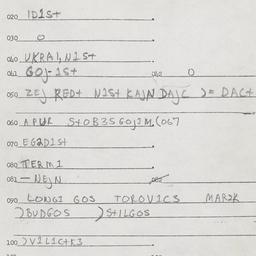 020 IDIST
030 O
040 UKRAI,NIST
041 GOJ-IST 042 O
050 ZEJ REDT NIST KAJN DAJC )= DACT
060 APUR STOB35GOJIM.(067
070 EG2DIST
080 TERMI
081 — NEJN 082
090 LONGI GOS TOROVICS MAR2K
)BUDGOS )STILGOS
100 )VILICTKI